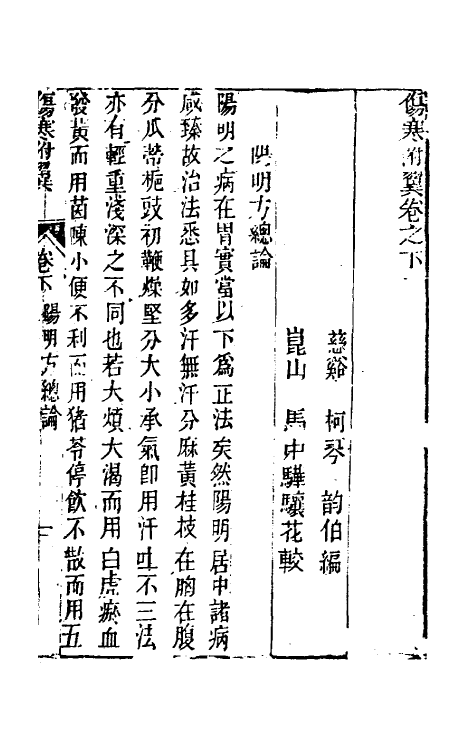 傷寒附翼卷之下
慈谿　柯琴　韵伯編
崑山　馬中驊驤花較
陽明方總論
陽明之病在胃實當以下爲正法矣然陽明居中諸病
咸臻故治法悉具如多汗無汗分麻黃桂枝在胸在腹
分瓜蒂梔豉初鞕燥堅分大小承氣卽用汗吐下三法
亦有輕重淺深之不同也若大煩大渴而用白虎瘀血
發黃而用茵陳小便不利而用猪苓停飲不散而用五
傷寒附翼　卷下　陽明方總論　一